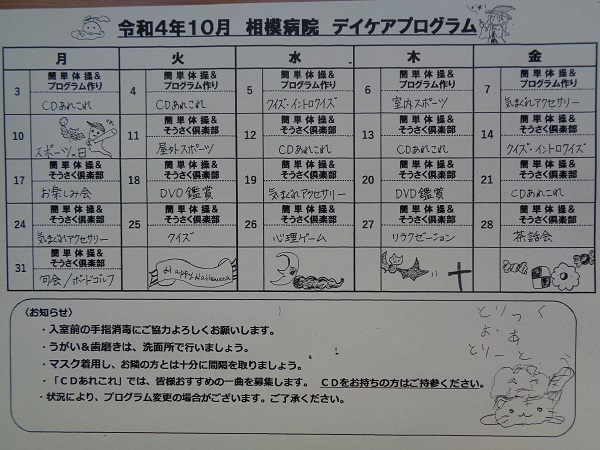 令和4年10月 相模病院 デイケアプログラム
月 火 水 木 金
3 簡単体操&プログラム作り CDあれこれ
4 簡単体操&プログラム作り CDあれこれ
5 簡単体操&プログラム作り クイズ・イントロクイズ
6 簡単体操&プログラム作り 室内スポーツ
7 簡単体操&プログラム作り 気まぐれアクセサリー
10 スポーツの日
11 簡単体操&そうさく倶楽部 屋外スポーツ
12 簡単体操&そうさく倶楽部 CDあれこれ
13 簡単体操&そうさく倶楽部 CDあれこれ
14 簡単体操&そうさく倶楽部 クイズ・イントロクイズ
17 簡単体操&そうさく倶楽部 お楽しみ会
18 簡単体操&そうさく倶楽部 DVD鑑賞
19 簡単体操&そうさく倶楽部 気まぐれアクセサリー
20 簡単体操&そうさく倶楽部 DVD鑑賞
21 簡単体操&そうさく倶楽部 CDあれこれ
24 簡単体操&そうさく倶楽部 気まぐれアクセサリー
25 簡単体操&そうさく倶楽部 クイズ
26 簡単体操&そうさく倶楽部 心理ゲーム
27 簡単体操&そうさく倶楽部 リラクゼーション
28 簡単体操&そうさく倶楽部 茶話会
31 簡単体操&そうさく倶楽部 句会/ボードゴルフ
Happy Halloween
〈お知らせ〉
・入室前の手指消毒にご協力よろしくお願いします。
・うがい&歯磨きは、洗面所で行いましょう。
・マスク着用し、お隣の方とは十分に間隔を取りましょう。
・「CDあれこれ」では、皆様おすすめの一曲を募集します。 CDをお持ちの方はご持参ください。
・状況により、プログラム変更の場合がございます。ご了承ください。
とりっく
おあ
とりーと